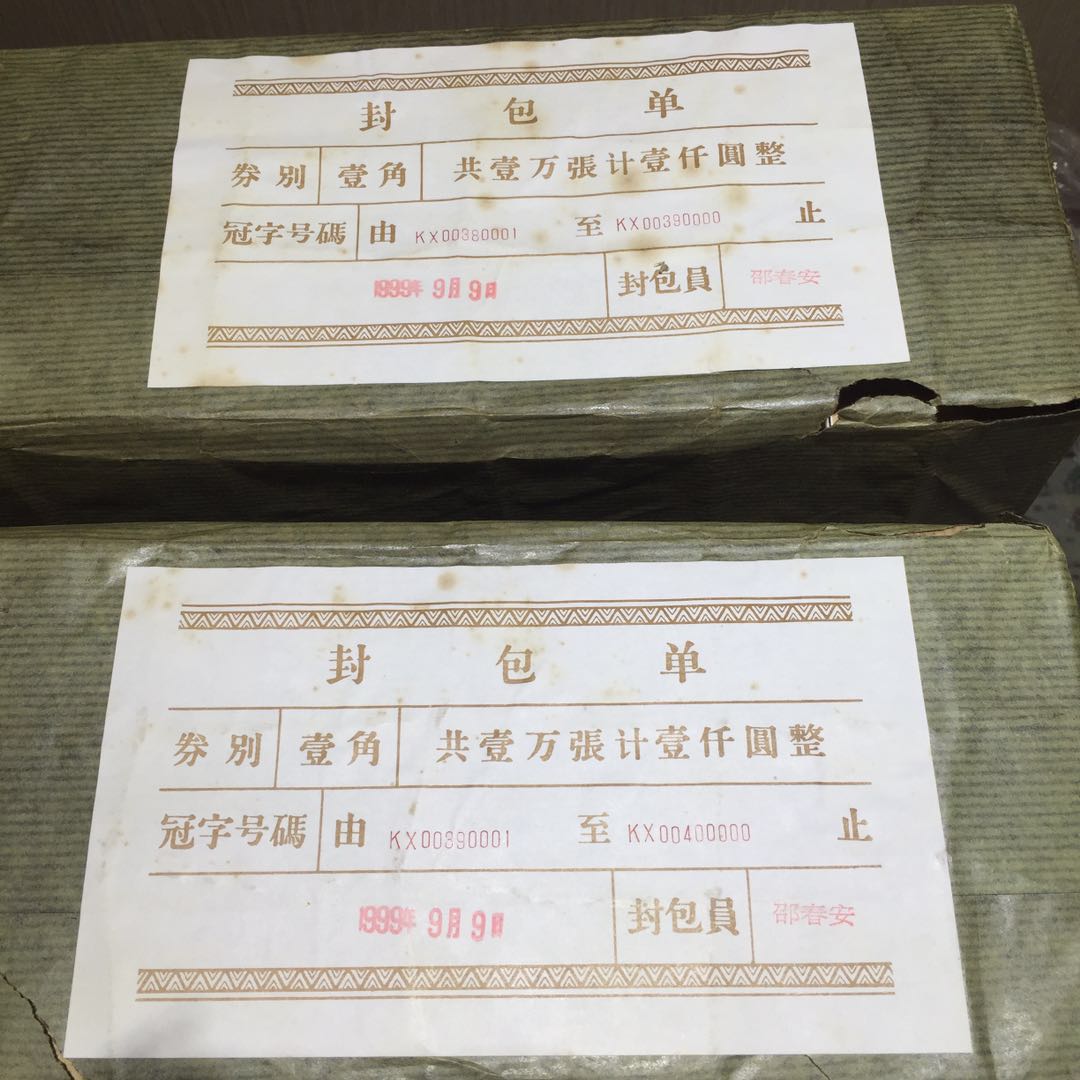 封包单
券别 壹角 共壹万張计壹仟圓整
冠字号碼 由 KX00380001 至 KX00390000 止
1999年9月9日 封包員 邵春安
封包单
券别 壹角 共壹万張计壹仟圓整
冠字号碼 由 KX00390001 至 KX00400000 止
1999年9月9日 封包員 邵春安